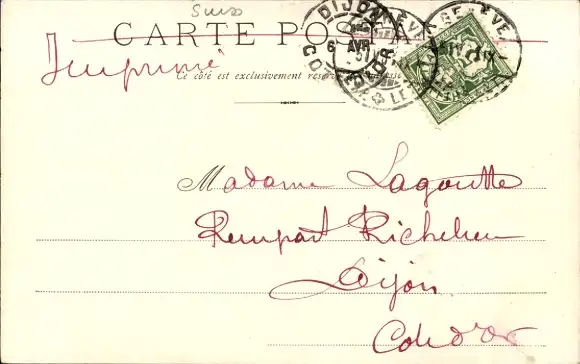 Suiss
CARTE POSTALE
Imprimé
Ce côté est exclusivement réservé à l'adresse
DIJON
6 AVR
COTE D'OR
GENÈVE
GENÈVE
Madame Lagoutte
Rempart Richelieu
Dijon
Côte d'Or